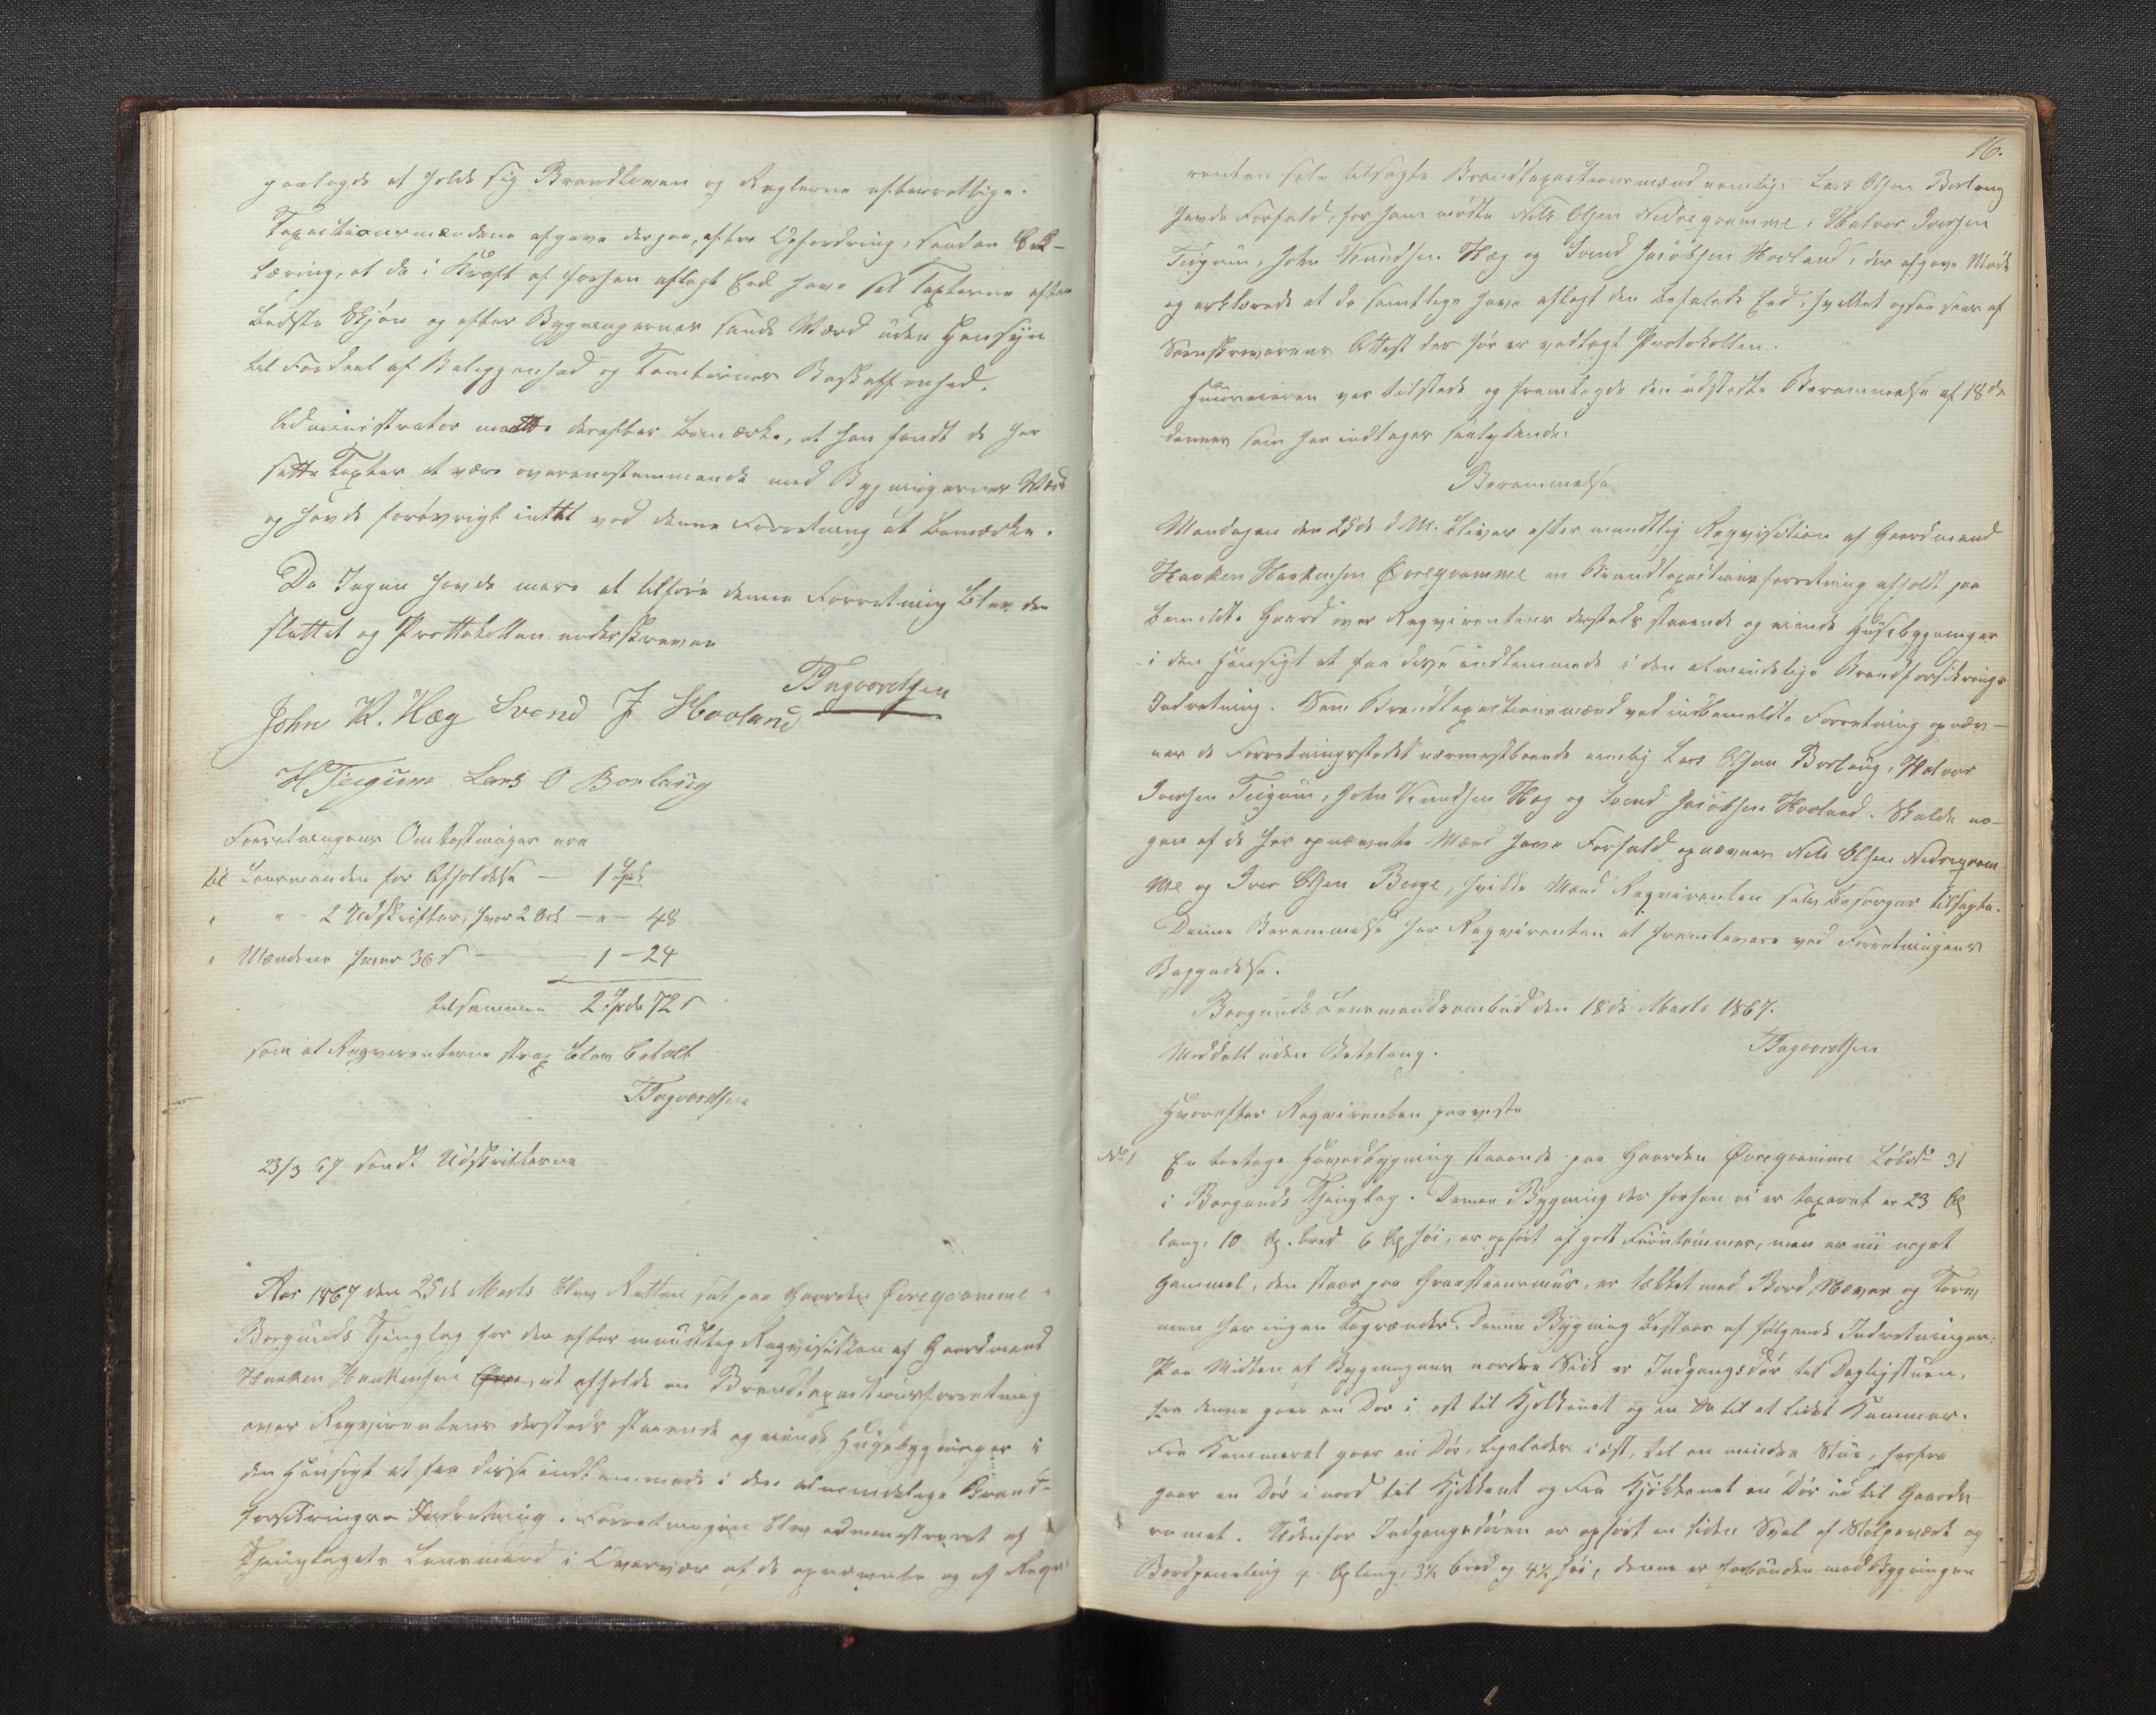 paalagde at holde sig Brandloven og Reglerne efterrettlige.
Taxationsmændene afgave derpaa, efter Opfordring, saadan Erk-
læring, at de i Kraft af forhen aflagt Eed have sat Taxterne efter
bedste Skjøn og efter Bygningernes sande Værd uden Hensyn
til Fordeel af Beliggenhed og Tomternes Beskaffenhed.
Administrator maatte derefter bemærke, at han fandt de her
satte Taxter at være overenstemmende med Bygningernes Værd
og havde forøvrigt inttet ved denne Forretning at bemærke.
Da Ingen havde mere at tilføre denne Forretning blev den
sluttet og Prottokollen underskreven
TDagvordsen
John K. Hæg Svend J Hovland
H Teigum Lars O Borlaug
Forretningens Omkostninger ere
til Lensmanden for Afholdelse — 1 Spd
" " - 2 Udskrifter, hver 2 Ort — " — 48
" Mændene hver 36 s — 1 — 24
tilsammen 2 Spdr 72 s
som af Reqvirenterne strax blev betalt
TDagvordsen
23/3 67 sendt Udskrifterne
Aar 1867 den 25de Marts blev Retten sat paa Gaarden Øvregvamme i
Borgunds Thinglag for der efter mundtlig Reqvisition af Gaardmand
Haaken Haakensen Øvre, at afholde en Brandtaxationsforretning
over Reqvirentens dersteds staaende og eiende Huusebygninger i
den Hensigt at faa disse indlemmede i den almindelige Brand-
forsikrings Indretning. Forretningen blev administreret af
Thinglagets Lensmand i Overvær af de opnævnte og af Reqvi-
16.
renten selv tilsagte Brandtaxationsmænd nemlig: Lars Olsen Borlaug
havde Forfald, for ham mødte Nils Olsen Nedregvamme, Halvor Iversen
Teigum, John Knudsen Hæg og Svend Jacobsen Hovland, der afgave Møde
og erklærede at de samtlige have aflagt den befalede Eed, hvilket ogsaa sees af
Sorenskriverens Attest der før er vedlagt Protokollen.
Huuseieren var tilstede og fremlagde den udstedte Berammelse af 18de
dennes som her indtages saalydende:
Berammelse
Mandagen den 25de d. M. bliver efter mundtlig Reqvisition af Gaardmand
Haaken Haakensen Øvregvamme en Brandtaxationsforretning afholdt paa
bemeldte Gaard over Reqvirentens dersteds staaende og eiende Huusebygninger
i den Hensigt at faa disse indlemmede i den almindelige Brandforsikrings
Indretning. Som Brandtaxationsmænd ved indbemeldte Forretning opnæv-
nes de Forretningsstedet nærmestboende nemlig Lars Olsen Borlaug, Halvor
Iversen Teigum, John Knudsen Hæg og Svend Jacobsen Hovland. Skulde no-
gen af de her opnævnte Mænd have Forfald opnævnes Nils Olsen Nedregvam
me og Iver Olsen Berge, hvilke Mænd Reqvirenten selv besørger tilsagte.
Denne Berammelse har Reqvirenten at fremlevere ved Forretningens
Begyndelse.
Borgunds Lensmandsombud den 18de Marts 1867.
TDagvordsen
Meddelt uden Betaling.
Hvorefter Reqvirenten paaviste
No 1 En toetages Hovedbygning staaende paa Gaarden Øvregvamme Løbno 31
i Borgunds Thinglag. Denne Bygning der forhen ei er taxeret er 23 Al
lang, 10 Al. bred 6 Al høi, er opført af godt Furutømmer, men er nu noget
gammel, den staar paa Graasteensmuur, er tækket med Bord, Næver og Torv,
men har ingen Tagrænder. Denne Bygning bestaar af følgende Indretninger:
Paa Midten af Bygningens nordre Side er Indgangsdør til Dagligstuen,
fra denne gaar en Dør i øst til Kjøkkenet og en Do til et lidet Kammer.
Fra Kammeret gaar en Dør, ligeledes i øst, til en mindre Stue, herfra
gaar en Dør i nord til Kjøkkent og fra Kjøkkenet en Dør ud til Gaards-
rumet. Udenfor Indgangsdøren er opført en liden Sval af Stolpeværk og
Bordpaneling 4 Al lang, 3½ bred og 4½ høi, denne er forbunden med Bygningen